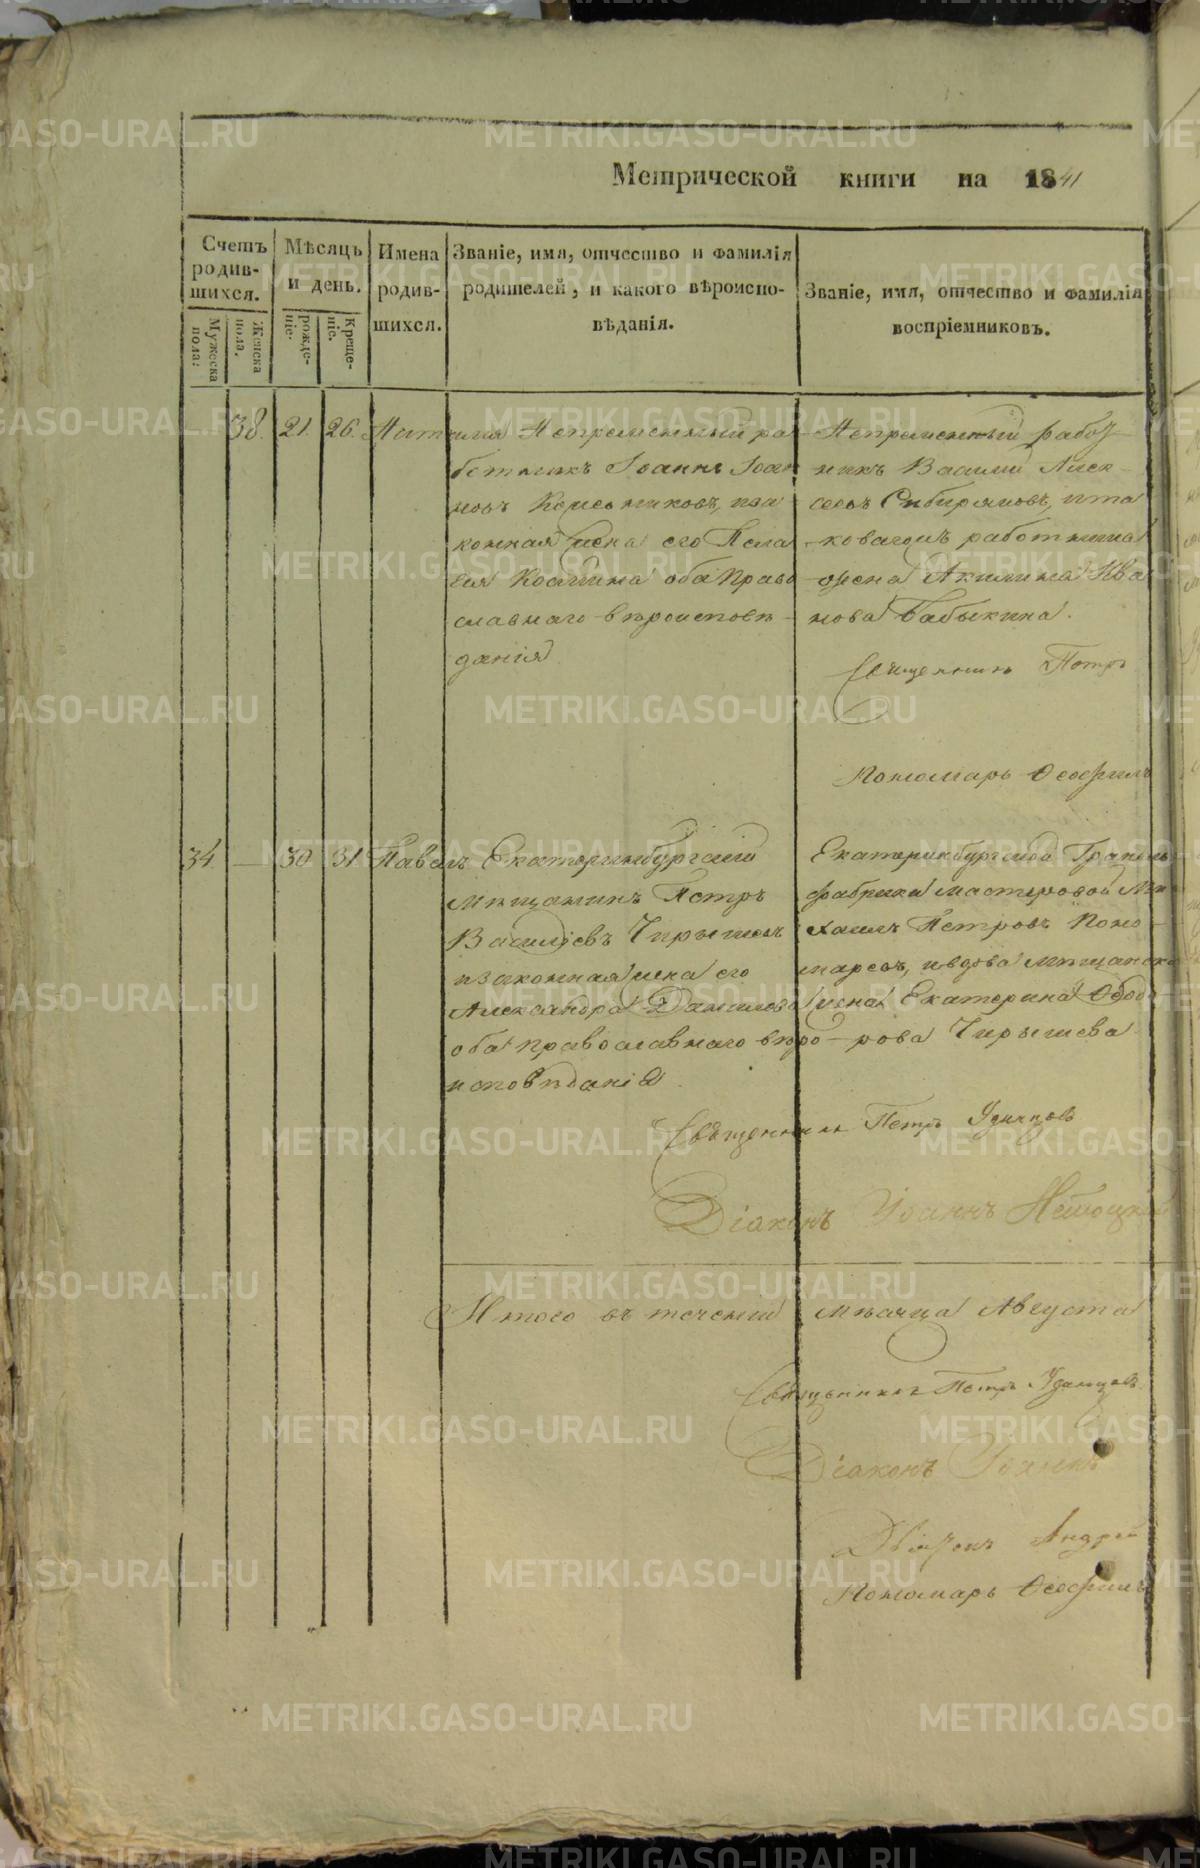 Метрической книги на 1841
Счетъ родив-шихся.
Мужеска пола:
Женска пола.
Мѣсяцъ и день.
рожде-ніе.
Креще-ніе.
Имена родив-шихся.
Званіе, имя, отчество и фамилія
родителей, и какого вѣроиспо-
вѣданія.
Званіе, имя, отчество и фамилія
воспріемниковъ.
38. 21. 26.
Непременный ра-
ботникъ Іоаннъ Іоан
новъ иза-
конная жена его Пела
гія Косьмина оба Право
славнаго вѣроисповѣ-
данія
Непременный работ-
никъ Василій Алек-
сеевъ Сибиряковъ, ита
коваго работника
жена Акилина Ива
нова Бабыкина.
Священникъ Петръ
Пономарь Ѳеофилъ
34. — 30. 31. Павелъ
Екатеринбургскій
мѣщанинъ Петръ
Василіевъ Чирышевъ
изаконная жена его
Александра Данилова
оба православнаго вѣро-
исповѣданія
Екатеринбургской Граниль
фабрики мастеровой Ми
хаилъ Петровъ Поно-
маревъ, ивдова мѣщанска
жена Екатерина Ѳедо-
рова Чирышева
Священникъ Петръ Удинцовъ
Діаконъ Іоаннъ
Итого въ теченіи мѣсяца Августа
Священникъ Петръ Удинцовъ
Діаконъ Іоаннъ
Дьячокъ Андрей
Пономарь Ѳеофилъ
METRIKI.GASO-URAL.RU